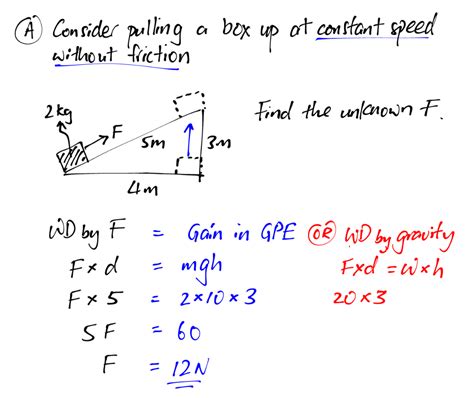 (A) Consider pulling a box up at constant speed
without friction
2kg
F
5m
3m
4m
Find the unknown F.
WD by F = Gain in GPE (OR) WD by gravity
F×d = mgh F×d = W×h
F×5 = 2×10×3 20×3
5F = 60
F = 12N